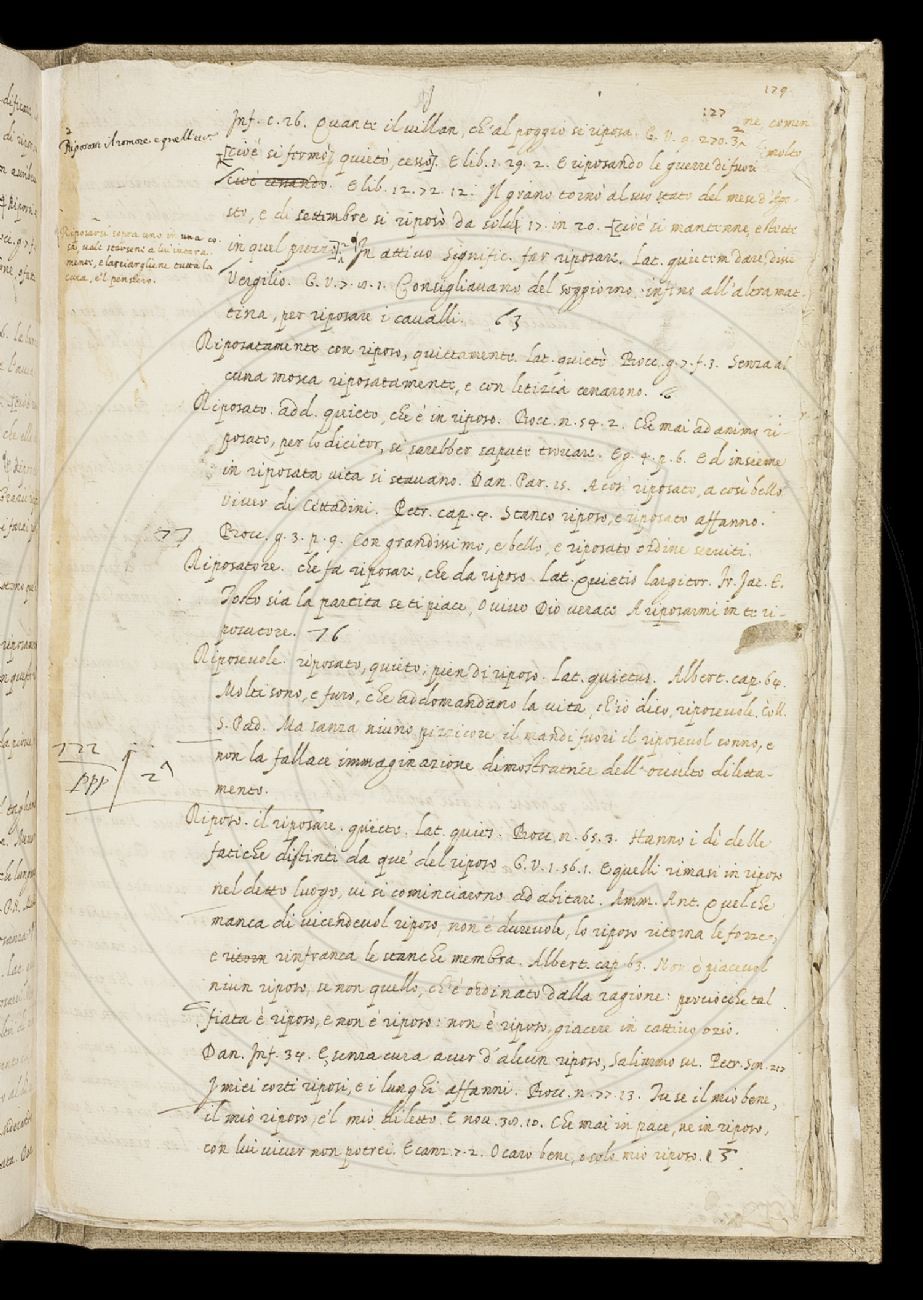 129
127
Inf. c. 26. Quante il villan, ch'al poggio si riposa. G. V. 9. 270. 3.
Riposarsi il romore. e quelle
[cioè si fermò, quietò, cessò]. E lib. 1. 29. 2. E riposando le guerre di fuori
cioè cessando. E lib. 12. 72. 12. Il grano tornò al suo stato del mese d'Ago-
sto, e di settembre si riposò da soldi 17. in 20. [cioè si mantenne, e stette
in quel prezzo]. In attivo signific. far riposare. Lat. quietem dare, disse
Riposarsi sopra uno in una co-
sa, vale starsene a lui intera-
mente, e lasciargliene tutta la
cura, e 'l pensiero.
Vergilio. G. V. 7. 10. 1. Consigliavano del soggiorno infino all'altra mat-
tina, per riposare i cavalli. 63
Riposatamente con riposo, quietamente. Lat. quietè. Bocc. g. 7. f. 3. Senza al
cuna mosca riposatamente, e con letizia cenarono. 6
Riposato. add. quieto, che è in riposo. Bocc. n. 54. 2. Che mai ad animo ri-
posato, per lo dicitor, si sarebber sapute trovare. E g. 4. p. 6. Ed insieme
in riposata vita si stavano. Dan. Par. 15. A così riposato, a così bello
Viver di Cittadini. Petr. cap. 4. Stanco riposo, e riposato affanno.
77
Bocc. g. 3. p. 9. Con grandissimo, e bello, e riposato ordine serviti.
Riposatore. che fa riposare, che da riposo. Lat. Quietis largitor. Fr. Jac. T.
Tosto sia la partita se ti piace, O vivo Dio verace A riposarmi in te ri-
posatore. 76
Riposevole. riposato, quieto, pien di riposo. Lat. quietus. Albert. cap. 64.
Molti sono, e furo, che addomandano la vita, ch'io dico, riposevole. Coll.
S. Pad. Ma sanza niuno pizzicore il mandi fuori il riposevol sonno, e
non la fallace immaginazione dimostratrice dell'occulto diletta-
mento.
122
ppp
2
Riposo. il riposare. quiete. Lat. quies. Bocc. n. 65. 3. Hanno i dì delle
fatiche distinti da que' del riposo. G. V. 1. 56. 1. E quelli rimasi in riposo
nel detto luogo, vi si cominciarono ad abitare. Amm. Ant. Quel che
manca di vicendevol riposo, non è durevole, lo riposo ritorna le forze,
e ritorn rinfranca le stanche membra. Albert. cap. 63. Non è piacevol
niun riposo, se non quello, ch'è ordinato dalla ragione: perciocchè tal
fiata è riposo, e non è riposo: non è riposo, giacere in cattivo ozio.
Dan. Inf. 34. E, senza cura aver d'alcun riposo, Salimmo su. Petr. Son. 207
I miei corti riposi, e i lunghi affanni. Bocc. n. 77. 13. Tu se il mio bene,
il mio riposo, e 'l mio diletto. E nov. 30. 10. Che mai in pace, ne in riposo,
con lui viver non potrei. E canz. 7. 2. O caro bene, o solo mio riposo. 15